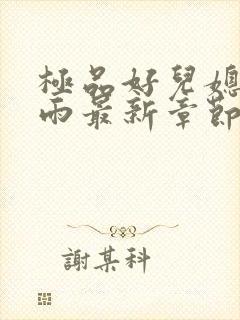 極品好兒媳
雨最新章節
謝某科